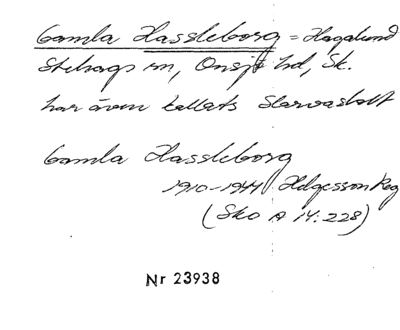 Gamla Hassleborg = Hagalund
Stehags sn, Onsjö hd, Sk.
har även kallats Slarvaslott
Gamla Hassleborg
1910-1944 Helgesson Reg
(Sko A 14:228)
Nr 23938